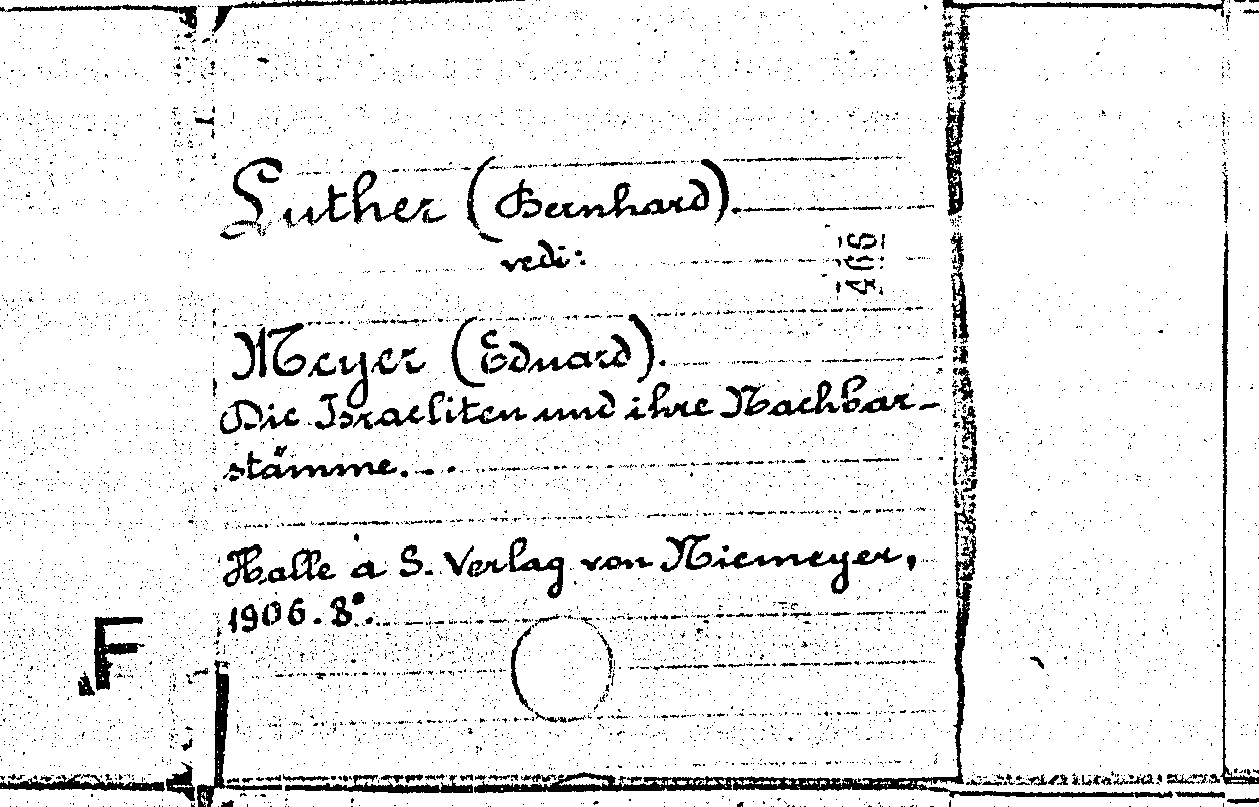 Luther (Bernhard).
vedi:
466
Meyer (Eduard).
Die Israeliten und ihre Nachbar-
stämme...
Halle a S. Verlag von Niemeyer,
1906. 8°.
F